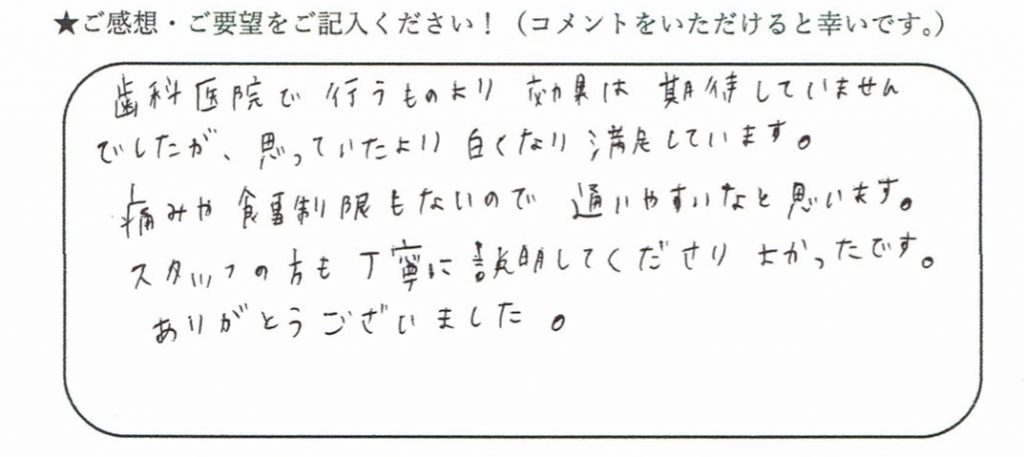 ★ご感想・ご要望をご記入ください！（コメントをいただけると幸いです。）
歯科医院で行うものより効果は期待していません
でしたが、思っていたより白くなり満足しています。
痛みや食事制限もないので通いやすいなと思います。
スタッフの方も丁寧に説明してくださりよかったです。
ありがとうございました。